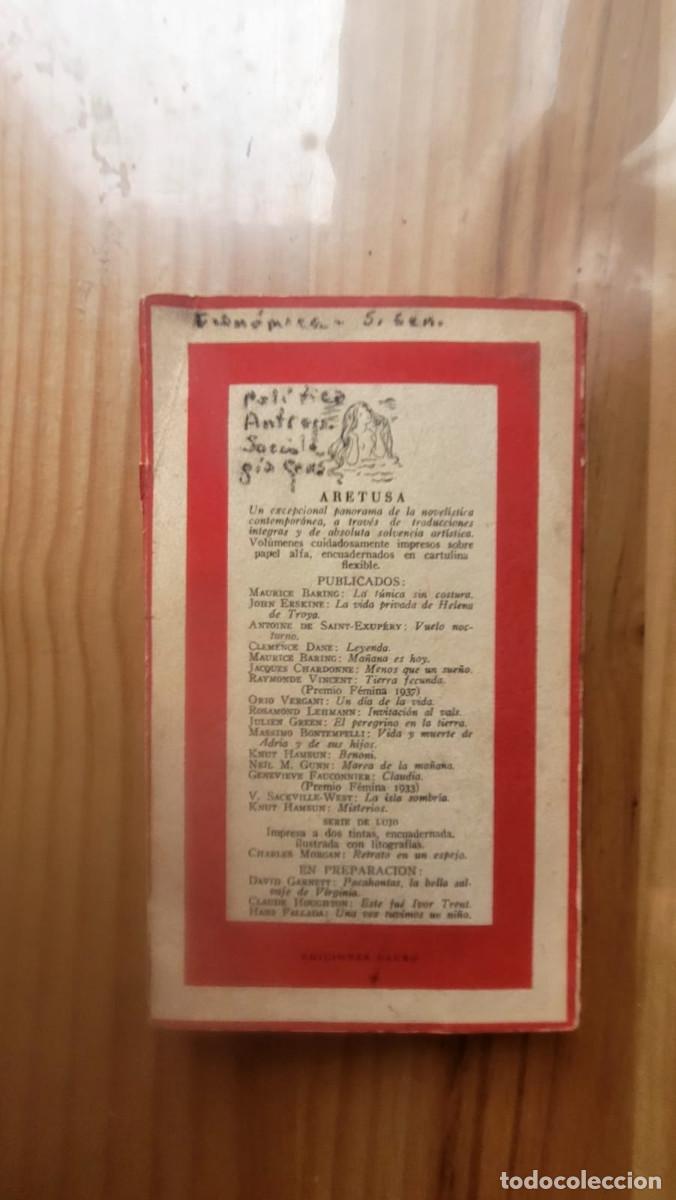 Económica - S. Gen.
Política
Antrop.
Sociolo
gía
ARETUSA
Un excepcional panorama de la novelística
contemporánea, a través de traducciones
íntegras y de absoluta solvencia artística.
Volúmenes cuidadosamente impresos sobre
papel alfa, encuadernados en cartulina
flexible.
PUBLICADOS:
MAURICE BARING: La túnica sin costura.
JOHN ERSKINE: La vida privada de Helena
de Troya.
ANTOINE DE SAINT-EXUPÉRY: Vuelo noc-
turno.
CLEMENCE DANE: Leyenda.
MAURICE BARING: Mañana es hoy.
JACQUES CHARDONNE: Menos que un sueño.
RAYMONDE VINCENT: Tierra fecunda.
(Premio Fémina 1937)
ORIO VERGANI: Un día de la vida.
ROSAMOND LEHMANN: Invitación al vals.
JULIEN GREEN: El peregrino en la tierra.
MASSIMO BONTEMPELLI: Vida y muerte de
Adria y de sus hijos.
KNUT HAMSUN: Benoni.
NEIL M. GUNN: Marea de la mañana.
GENEVIEVE FAUCONNIER: Claudia.
(Premio Fémina 1933)
V. SACKVILLE-WEST: La isla sombría.
KNUT HAMSUN: Misterios.
SERIE DE LUJO
Impresa a dos tintas, encuadernada,
ilustrada con litografías.
CHARLES MORGAN: Retrato en un espejo.
EN PREPARACION:
DAVID GARNETT: Pocahontas, la bella sal-
vaje de Virginia.
CLAUDE HOUGHTON: Este fué Ivor Trent.
HANS FALLADA: Una vez tuvimos un niño.
EDICIONES LAURO
todocoleccion